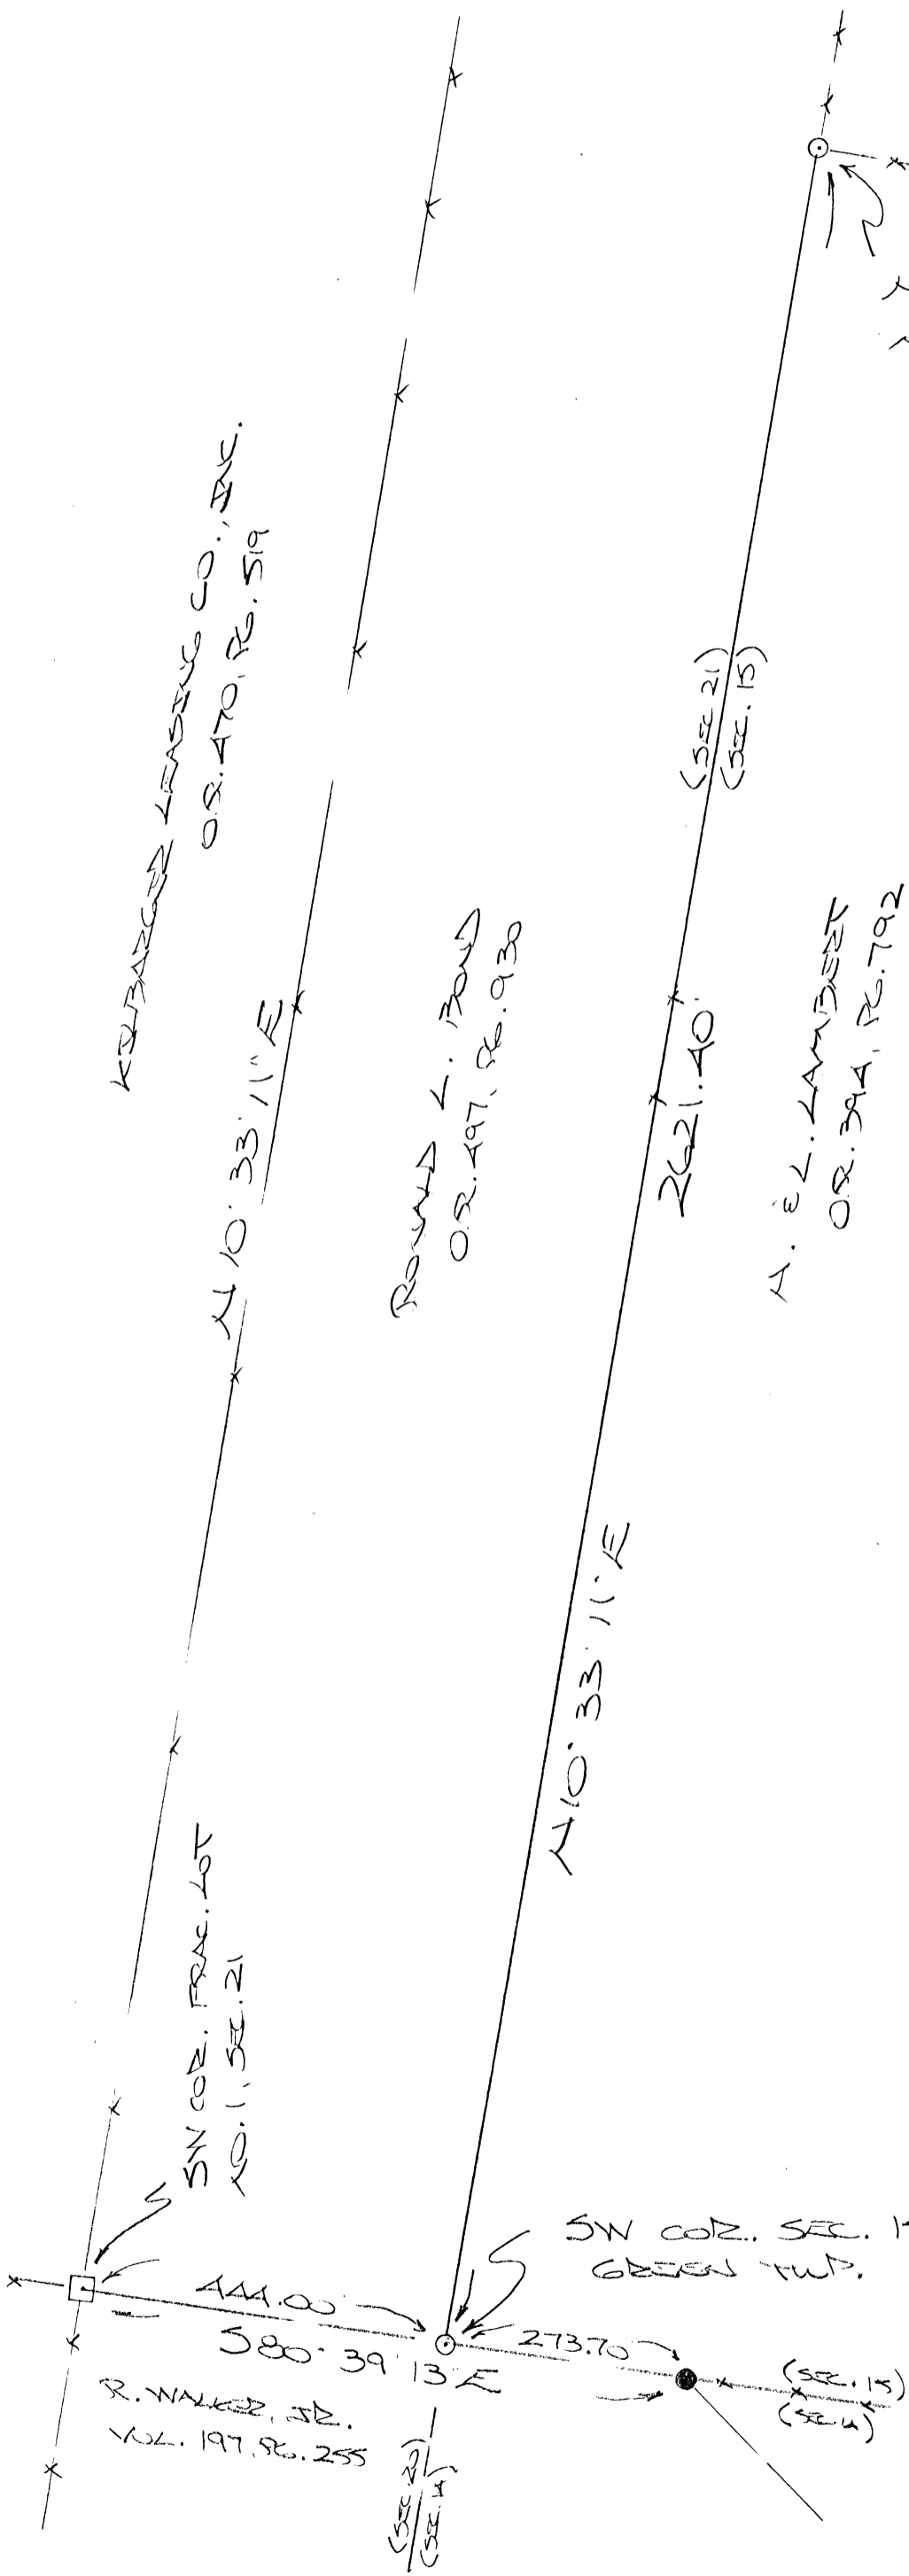 KRIBARGER LEASING CO., INC.
O.R. 470, PG. 519
N 10° 33' 11" E
RONALD L. BOND
O.R. 497, PG. 930
(SEC. 21)
(SEC. 15)
2621.40'
A. & L. LAMBERT
O.R. 394, PG. 792
N 10° 33' 11" E
SW COR. FRAC. LOT
NO. 1, SEC. 21
SW COR. SEC.
GREEN TWP.
444.00'
S 80° 39' 13" E
273.70'
R. WALKER, JR.
VOL. 197, PG. 255
(SEC. 20)
(SEC. 15)